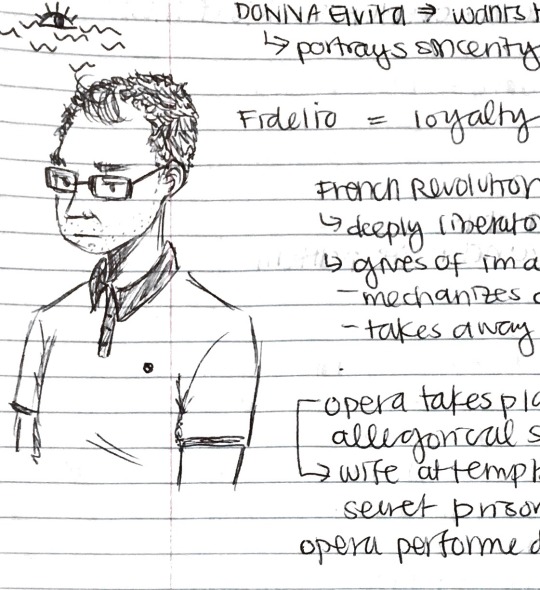 DONNA Elvira ⇒ wants
↳ portrays sincerity
Fidelio = loyalty
French Revolution
↳ deeply liberato
↳ gives of ima
- mechanizes
- takes away
opera takes pla
allegorical s
↳ wife attempt
secret prison
opera performed